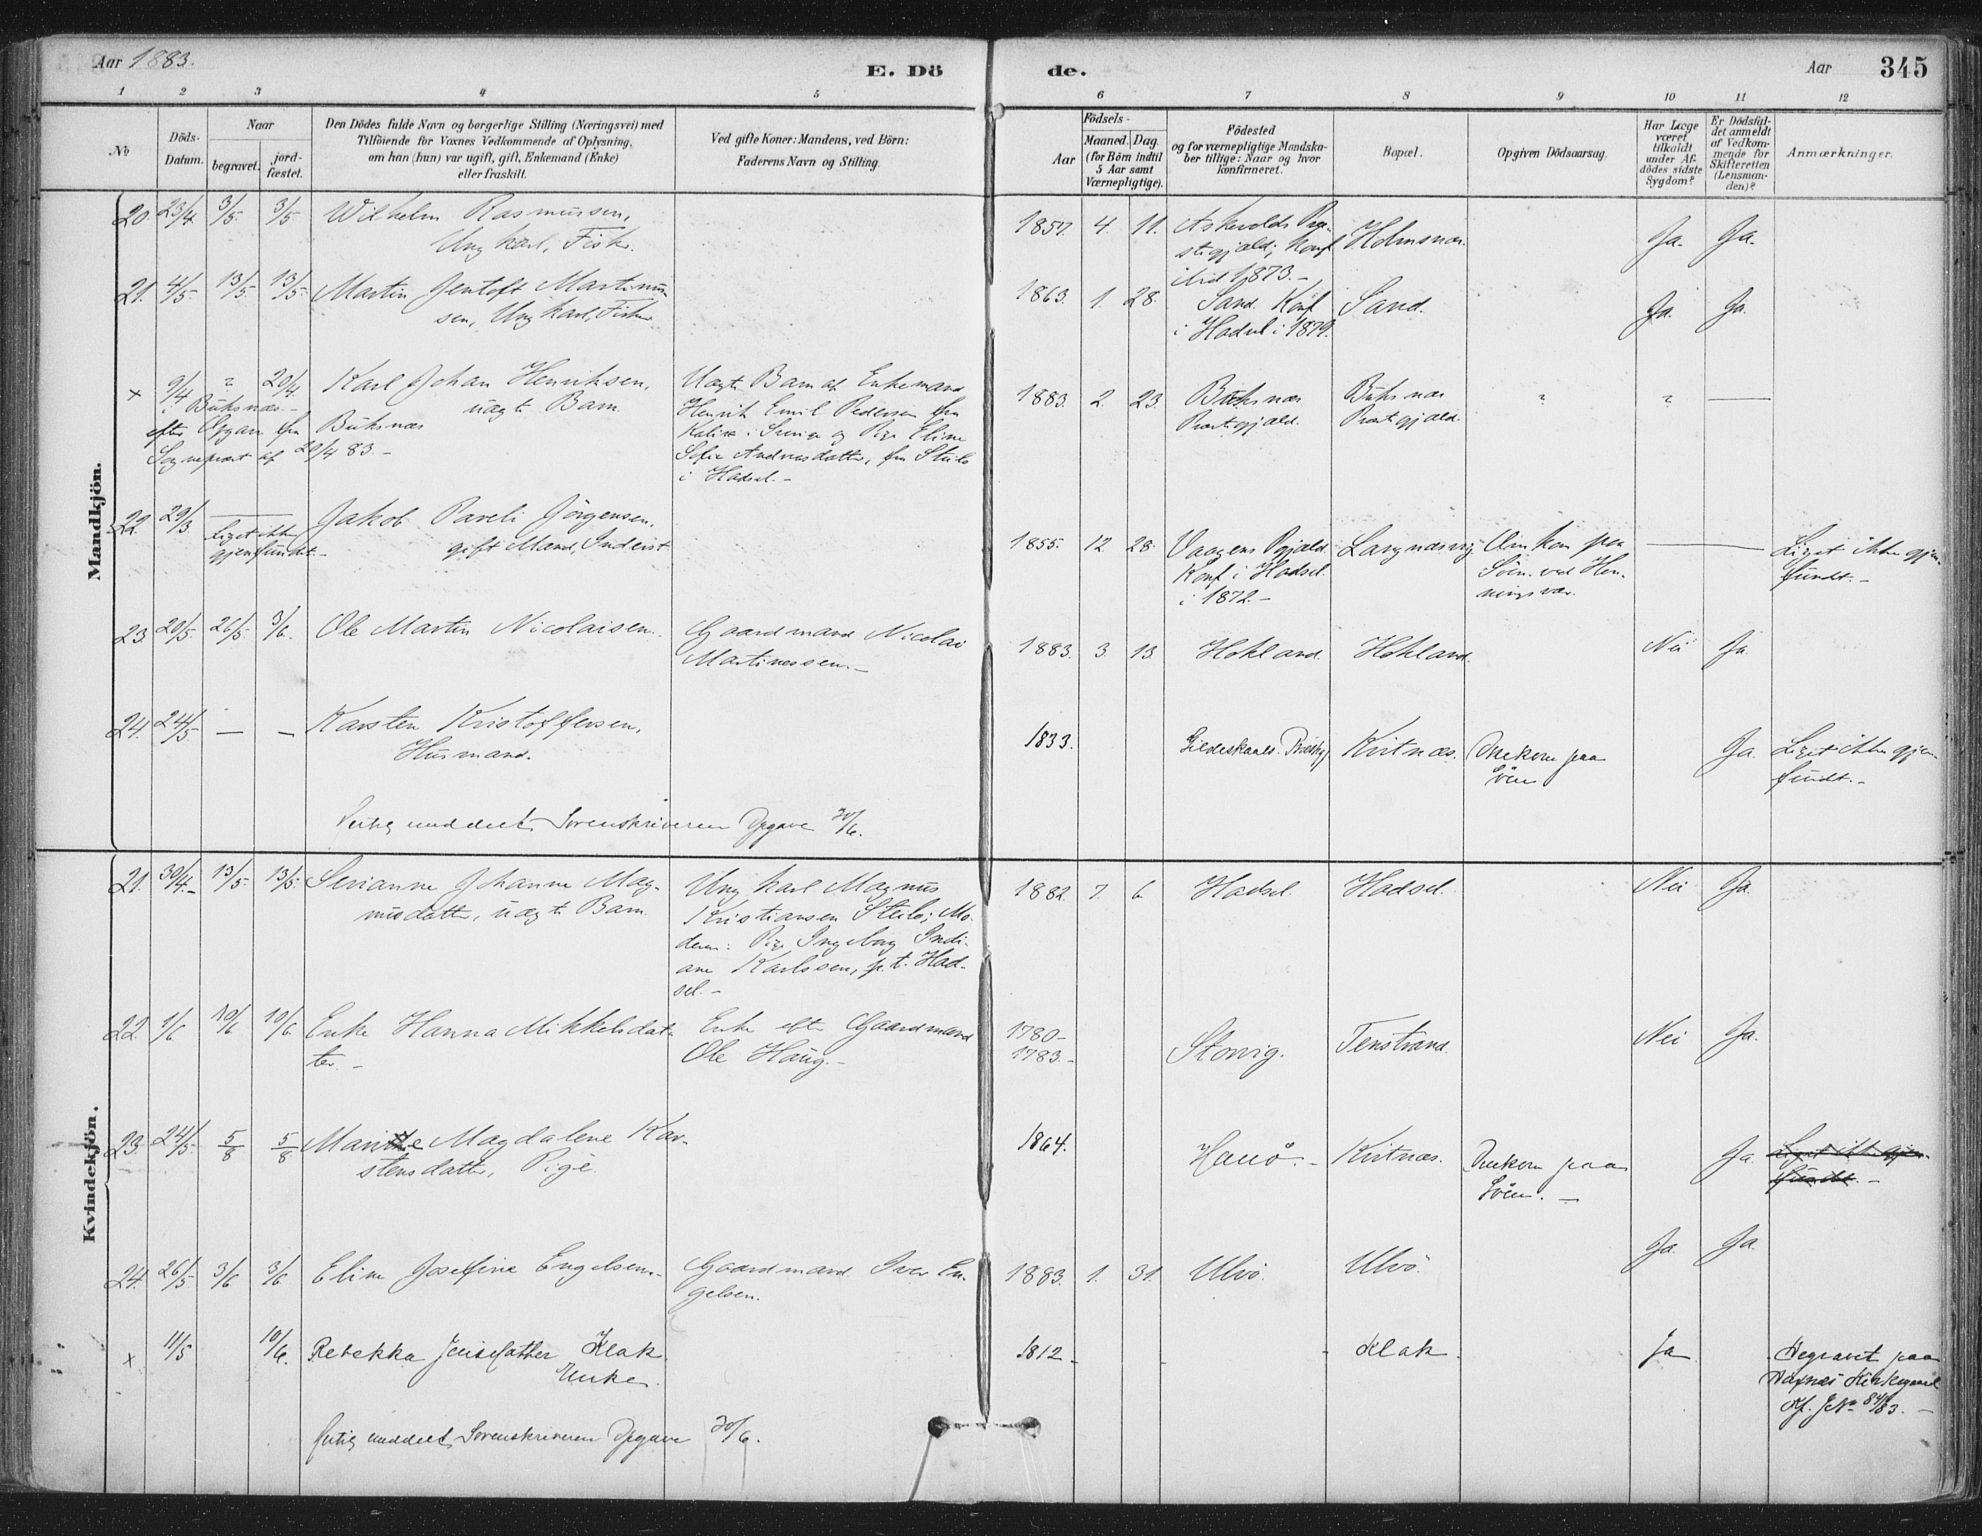 Aar 1883.
E. Dö
de.
Aar
345
1 2 3 4 5 6 7 8 9 10 11 12
No
Döds-
Datum.
Naar
begravet.
jord-
fæstet.
Den Dödes fulde Navn og borgerlige Stilling (Næringsvei) med
Tilföiende for Voxnes Vedkommende af Oplysning,
om han (hun) var ugift, gift, Enkemand (Enke)
eller fraskilt.
Ved gifte Koner: Mandens, ved Börn:
Faderens Navn og Stilling.
Födsels-
Aar
Maaned.
Dag.
(for Börn indtil
5 Aar samt
Værnepligtige).
Födested
og for værnepligtige Mandska-
ber tillige: Naar og hvor
konfirmeret.
Bopæl.
Opgiven Dödsaarsag.
Har Læge
været
tilkaldt
under Af-
dödes sidste
Sygdom?
Er Dödsfal-
det anmeldt
af Vedkom-
mende for
Skifteretten
(Lensman-
den)?
Anmærkninger.
Mandkjön.
20. 23/4. 3/5. 3/5 Wilhelm Rasmussen,
Ungkarl, Fisker.
1857. 4. 11. Askevolds Præ-
stegjæld; Konf
1873.-
Holmsnæs. Ja. Ja.
21. 4/5 13/5. 13/5. Martin Jentoft Martinus-
sen, Ungkarl, Fisker.
1863. 1. 28. Sand. Konf
i Hadsel i 1879.
Sand. Ja. Ja.
× 9/4 " 20/4. Karl Johan Henriksen,
uægte Barn
i Buksnæs.-
efter Opgave fra Buksnæs
Sognepræst af 20/4 83.-
Uægte Barn af Enkemand
Henrik Emil Pedersen fra
Kalix i Sverige og Pige Eline
Sofie Andreasdatter, fra Steilo
i Hadsel.-
1883. 2. 23. Buksnæs
Præstegjæld.
Buksnæs
Præstegjæld " "
22. 29/3. Jakob Paveli Jörgensen,
gift Mand, Inderst
Liget ikke
gjenfundet.-
1855. 12. 28. Vaagens Pgjæld.
Konf i Hadsel
i 1872.-
Omkom paa
Söen ved Hen-
ningsvær.
Liget ikke gjen-
fundt.-
23. 20/5. 26/5. 3/6. Ole Martin Nicolaisen.
Gaardmand Nicolai
Martinussen.-
1883. 3. 13. Hokland. Hokland. Nei Ja.
24. 24/5 - - Karsten Kristoffersen,
Husmand.
1833. Gildeskaals Kvitnæs. Omkom paa
Söen
Ja. Liget ikke gjen-
fundt.-
Fertig meddelt Sorenskriveren Opgave 30/6.
Kvindekjön.
21. 30/4.- 13/5. 13/5. Serianne Johanne Mag-
nusdatter, uægte Barn
Ungkarl Magnus
Kristiansen Steilo; Mo-
deren: Pige Ingeborg Indi-
ane Karlssen, p.t. Had-
sel.-
1882. 7. 6. Hadsel Hadsel. Nei Ja.
22. 1/6 10/6 10/6 Enke Hanna Mikkelsdat-
ter.-
Enke efter Gaardmand
Ole Haug.-
1780-
1783.-
Storvig. Tenstrand. Nei Ja.
23. 24/5. 5/8 5/8 Marie Magdalene Kar-
stensdatter, Pige
1864. Hanö.- Kvitnæs. Omkom paa
Söen.-
Ja. Liget ikke gjen-
fundt.-
24. 26/5. 3/6 3/6 Eline Josefine Engelsen.
Gaardmand Iver En-
gelsen.
1883. 1. 31. Ulvö. Ulvö. Ja. Ja.
× 11/5 10/6. Rebekka Jensdatter Klak
Enke.
1812 Klak. Ja Begravet paa
Kirkegaard
Kf. JNo 84/83.-
Fertig meddelt Sorenskriveren Opgave 30/6.